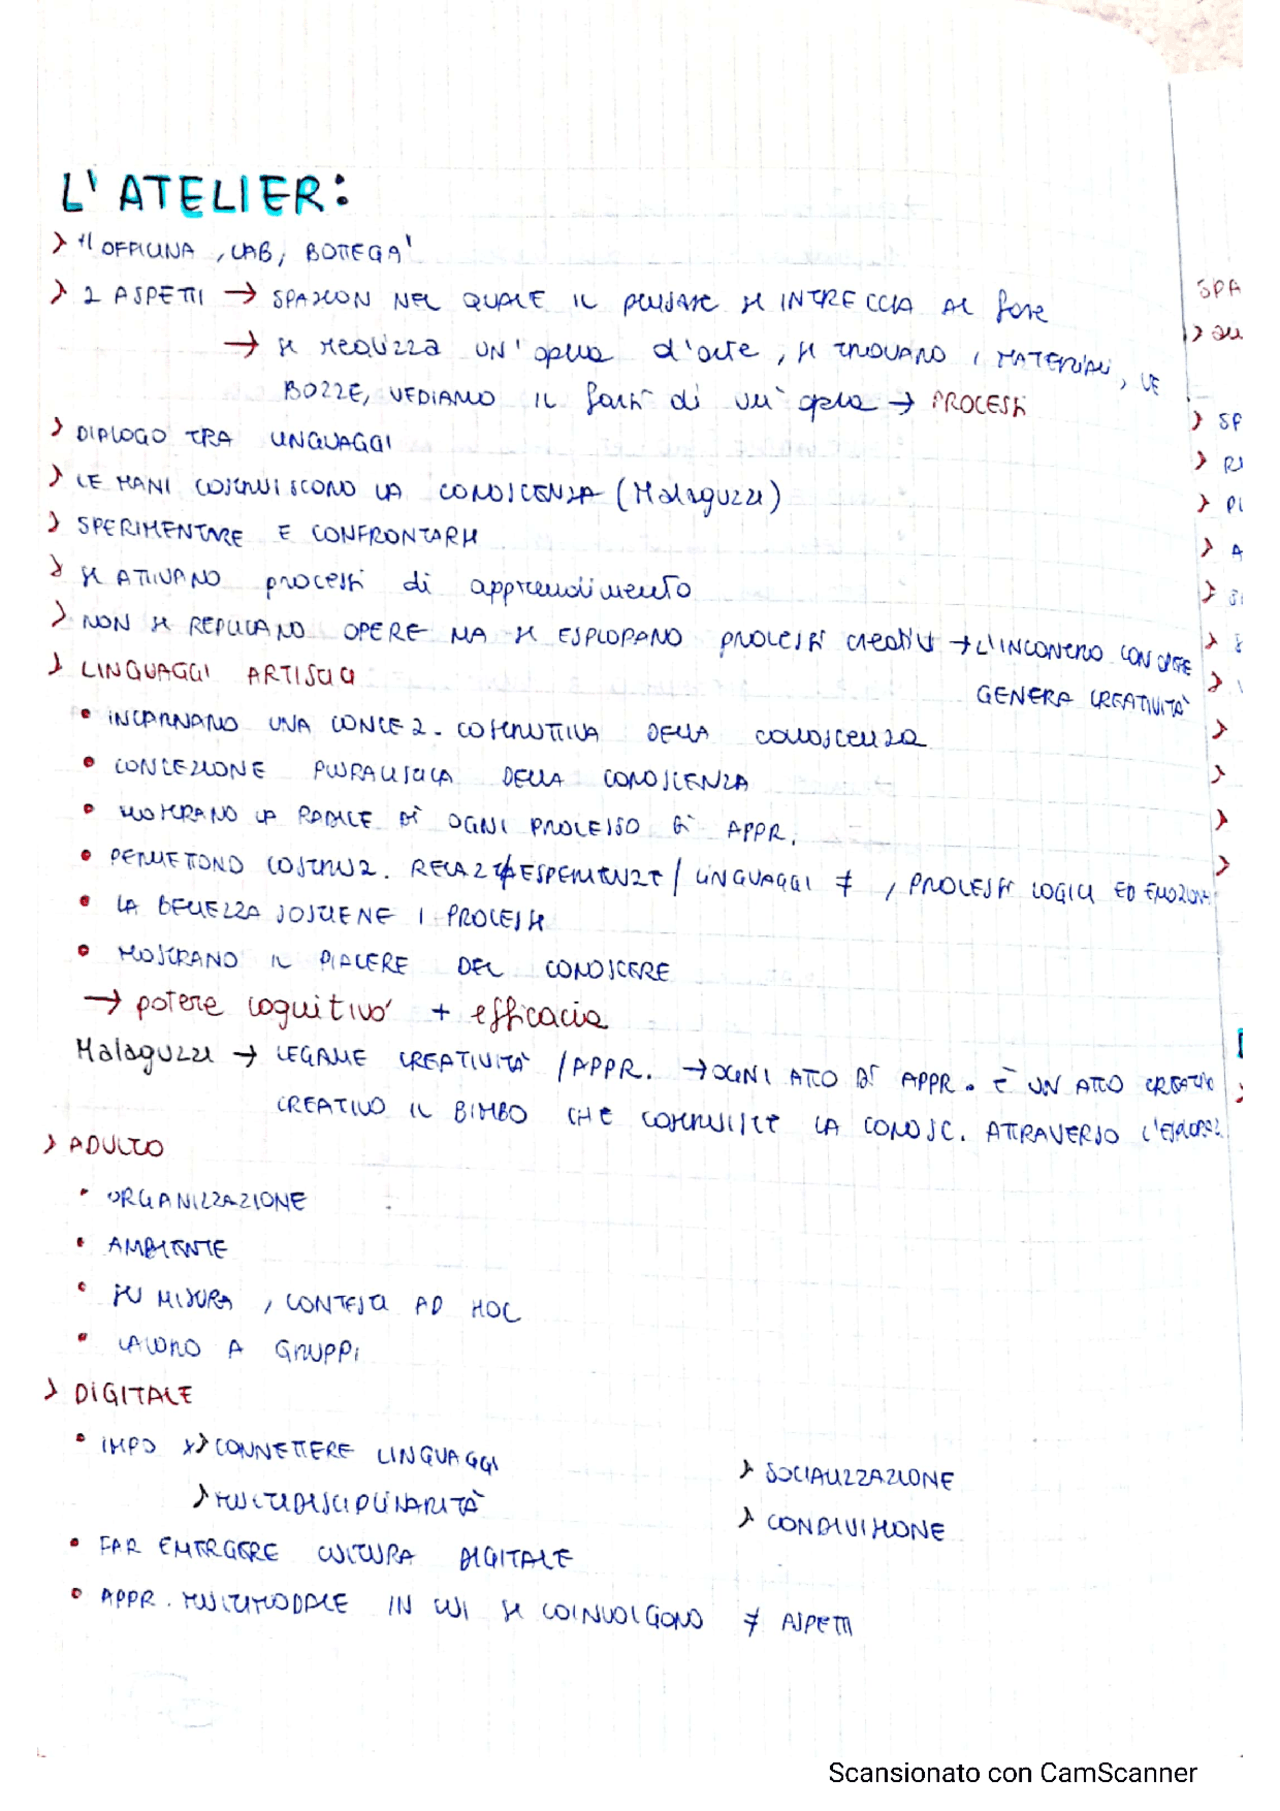 L'ATELIER:
> "OFFICINA, LAB, BOTTEGA"
> 2 ASPETTI → SPAZION NEL QUALE IL pensare si INTRECCIA AL fare
→ si realizza UN'opera d'arte, si TROVANO I MATERIALI, LE
BOZZE, VEDIAMO IL farsi di un'opera → PROCESSI
> DIALOGO TRA LINGUAGGI
> LE MANI COSTRUISCONO LA CONOSCENZA (Malaguzzi)
> SPERIMENTARE E CONFRONTARSI
> SI ATTIVANO processi di apprendimento
> NON SI REPLICANO OPERE MA SI ESPLORANO PROCESSI creativi → L'INCONTRO CON
GENERA CREATIVITÀ
> LINGUAGGI ARTISTICI
• INCARNANO UNA CONCEZ. COSTRUTTIVA DELLA conoscenza
• CONCEZIONE PLURALISTICA DELLA CONOSCENZA
• MOSTRANO LA RADICE DI OGNI PROCESSO DI APPR.
• PERMETTONO COSTRUZ. RELAZ ESPERIENZE / LINGUAGGI ≠, PROCESSI LOGICI ED EMOZION
• LA BELLEZZA SOSTIENE I PROCESSI
• MOSTRANO IL PIACERE DEL CONOSCERE
→ potere cognitivo + efficacia
Malaguzzi → LEGAME CREATIVITÀ / APPR. → OGNI ATTO DI APPR. È UN ATTO CREATIVO
CREATIVO IL BIMBO CHE COSTRUISCE LA CONOSC. ATTRAVERSO L'ESPLORAZ.
> ADULTO
• ORGANIZZAZIONE
• AMBIENTE
• SU MISURA, CONTESTI AD HOC
• LAVORO A GRUPPI
> DIGITALE
• IMPO X > CONNETTERE LINGUAGGI
> SOCIALIZZAZIONE
> MULTIDISCIPLINARITÀ
> CONDIVISIONE
• FAR EMERGERE CULTURA DIGITALE
• APPR. MULTIMODALE IN CUI SI COINVOLGONO ≠ ASPETTI
Scansionato con CamScanner